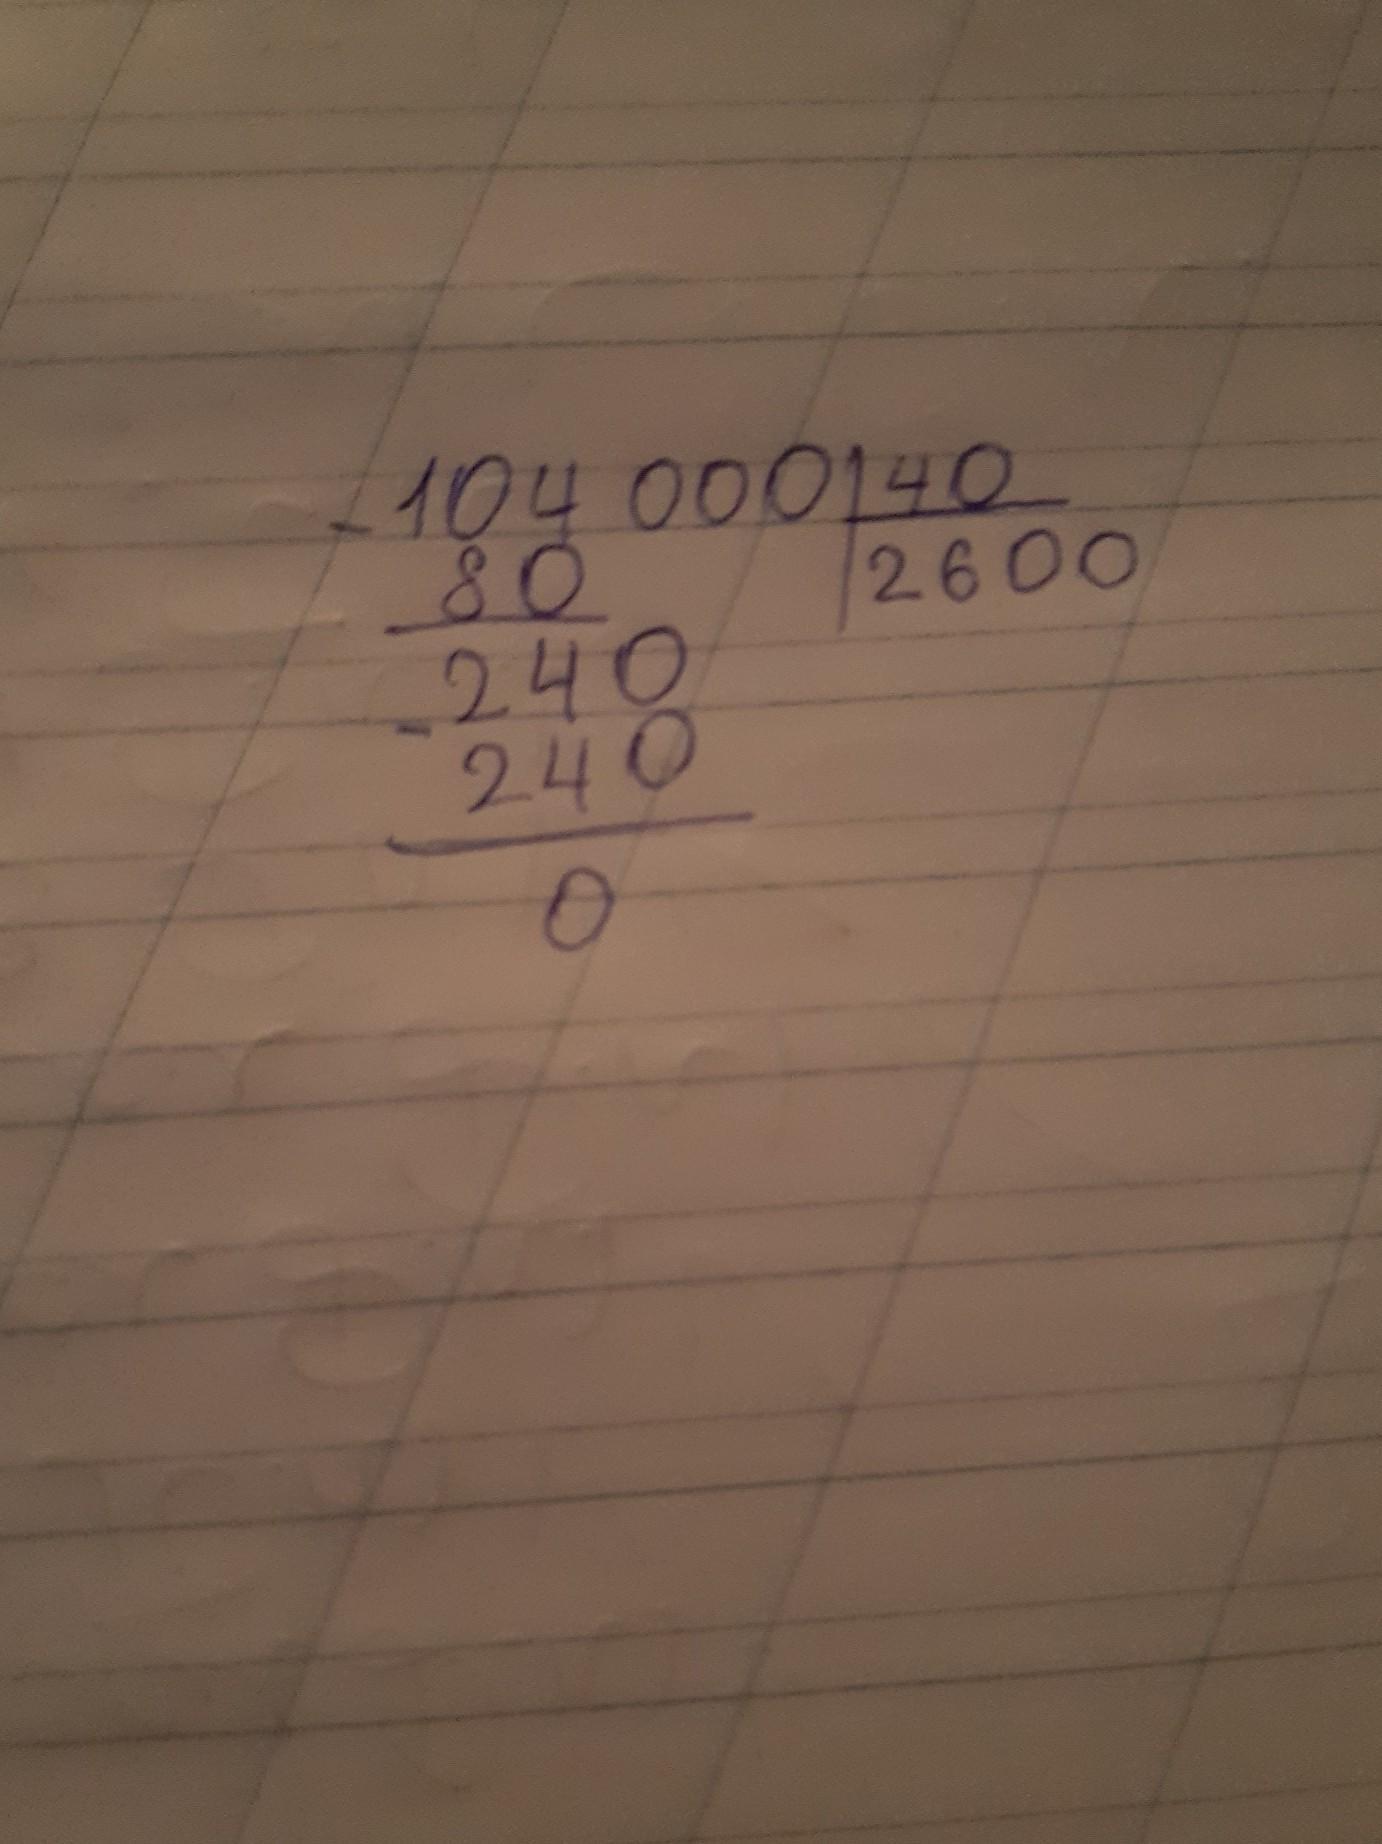 - 104 000 | 40
80 | 2600
240
- 240
0